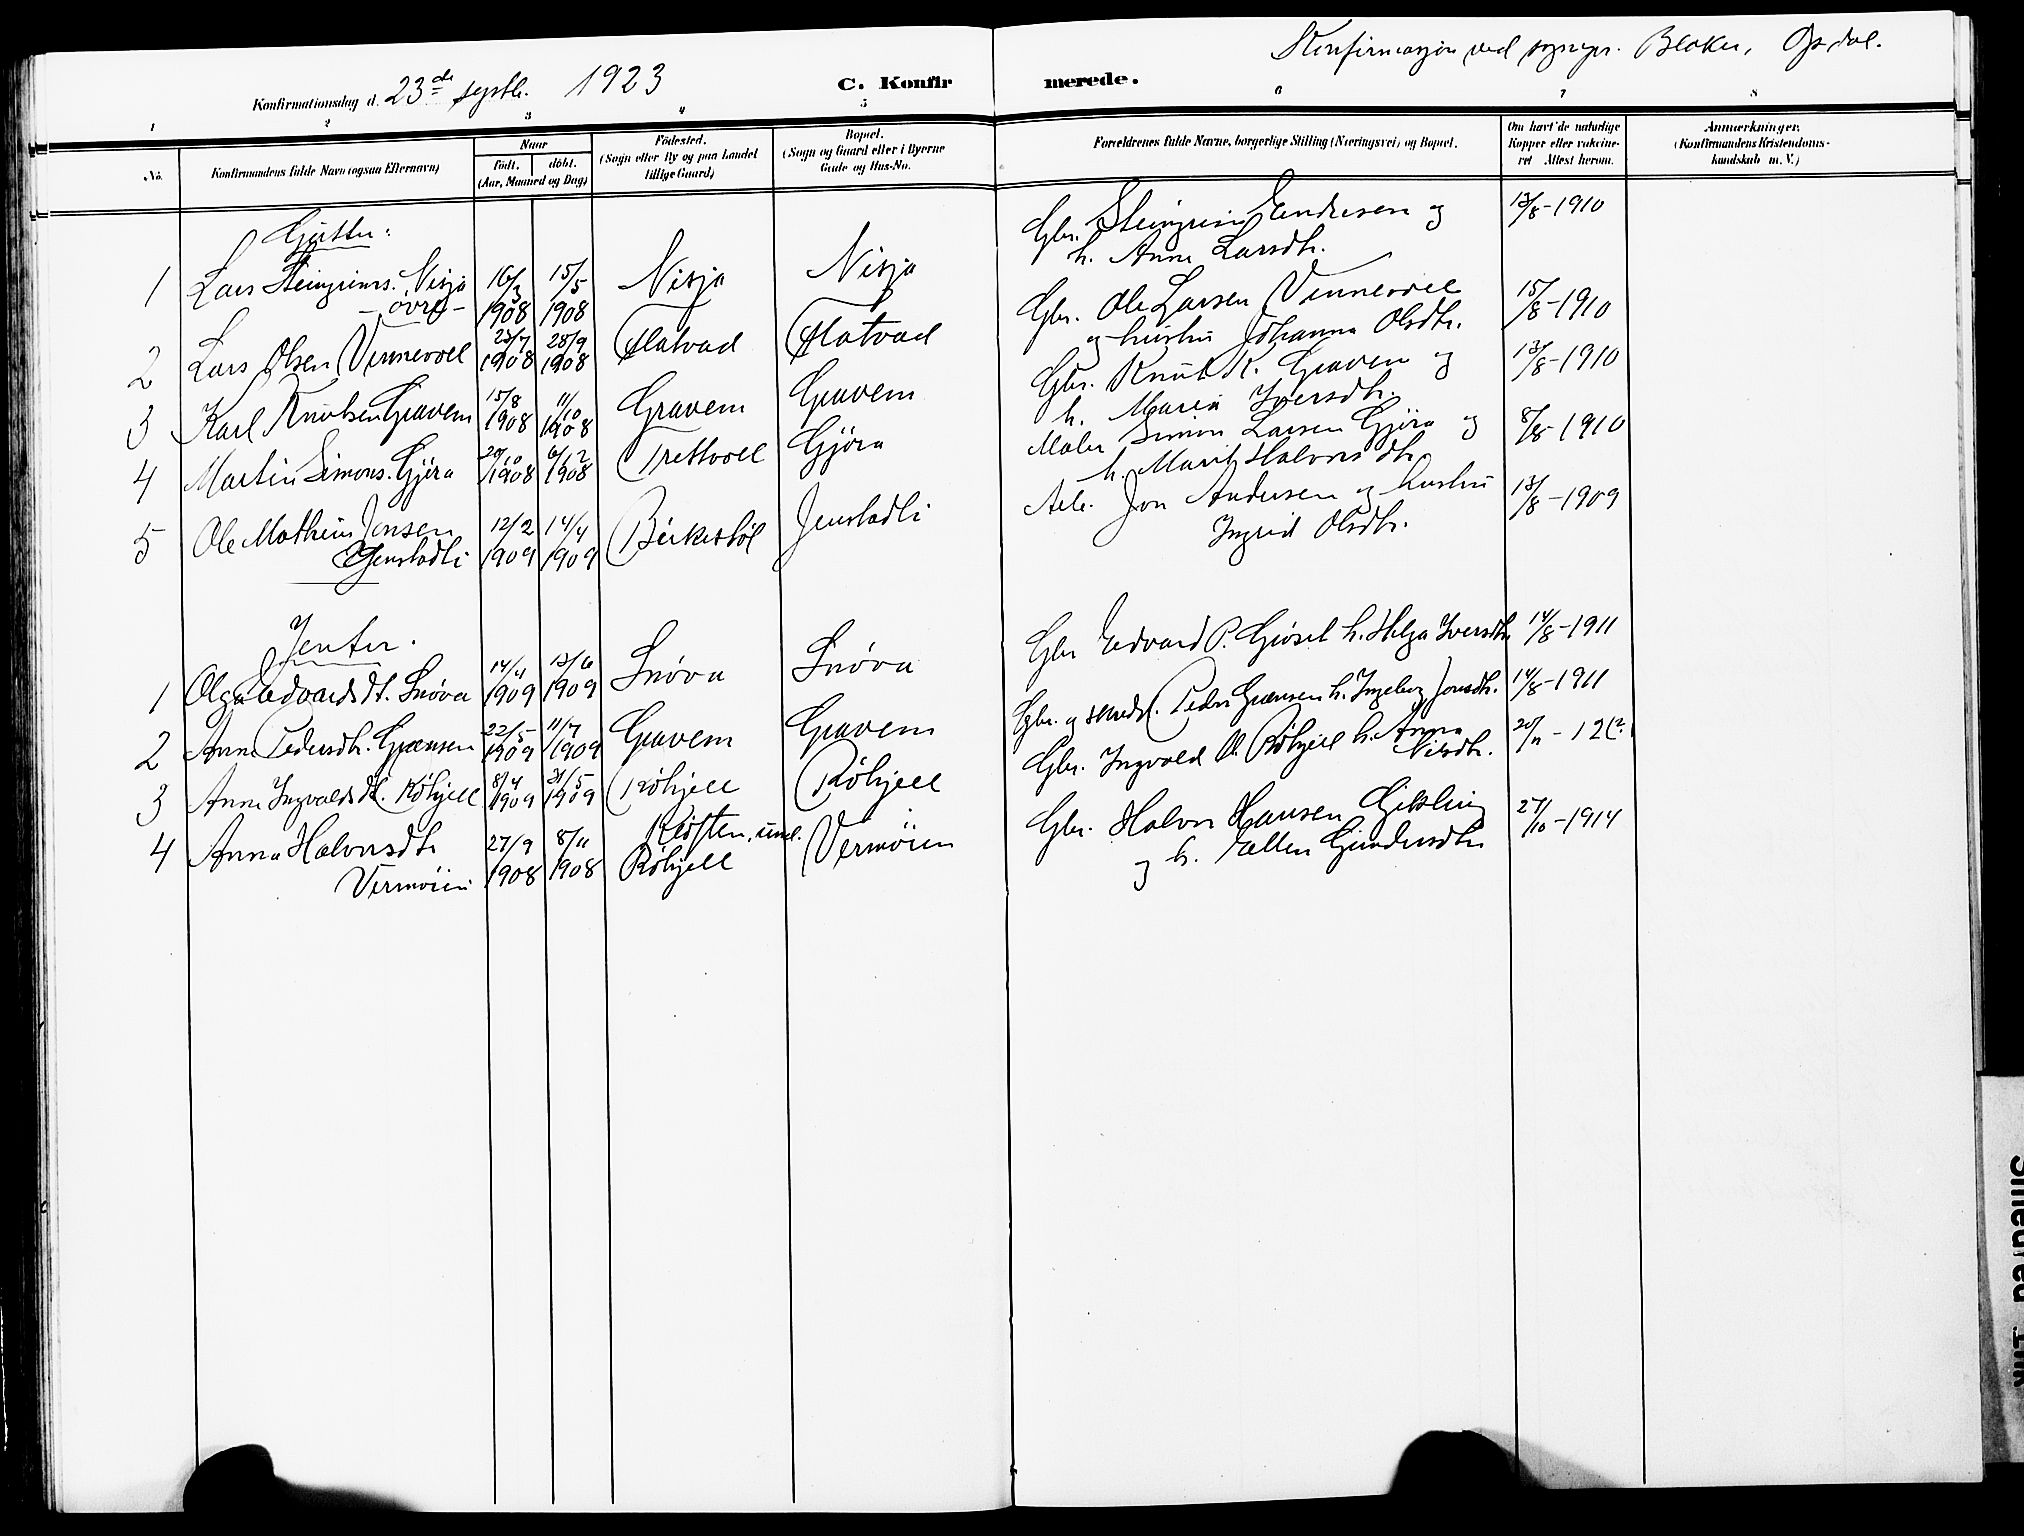 Konfirmasjon ved sognepr. Bloker, Opdal.
Konfirmationsdag d. 23de septbr. 1923
C. Konfirmerede.
1 2 3 4 5 6 7 8
No.
Konfirmandens fulde Navn (ogsaa Efternavn)
Naar
født. døbt.
(Aar, Maaned og Dag)
Fødested.
(Sogn eller By og paa Landet
tillige Gaard)
Bopæl.
(Sogn og Gaard eller i Byerne
Gade og Hus-No.
Forældrenes fulde Navne, borgerlige Stilling (Næringsvei) og Bopæl.
Om havt de naturlige
Kopper eller vakcine-
ret Attest herom.
Anmærkninger.
(Konfirmandens Kristendoms-
kundskab m. V.)
Gjutter:
1 Lars Steingrims. Nisja 16/3 15/5 Nisja Nisja Gbr. Steingrim Endresen og 13/8-1910
- øvre - 1908 1908 h. Anne Larsdtr.
2 Lars Olsen Vennevoll 23/7 28/9 Flatvad Flatvad Gbr. Ole Larsen Vennevoll 15/8-1910
1908 1908 og hustru Johanna Olsdtr.
3 Karl Knutsen Gravem 15/8 11/10 Gravem Gravem Gbr. Knut K. Gravem og 13/8-1910
1908 1908 h. Marit Iversdtr.
4 Martin Simons. Gjøra 20/10 6/12 Trettvoll Gjøra Maler Simon Larsen Gjøra og 8/8-1910
1908 1908 h. Marit Halvorsdtr.
5 Ole Matheus Jonsen 12/2 14/4 Birkestøl Jenstadli Arb. Jon Andersen og hustru 13/8-1909
Jenstadli 1909 1909 Ingrid Olsdtr.
Jenter.
1 Olga Edvardsdt. Snøva 14/4 13/6 Snøva Snøva Gbr Edvard P. Gjøset h. Helga Iversdtr 14/8-1911
1909 1909
2 Anne Pedersdtr. Grønsen 22/5 11/7 Gravem Gravem Gbr. og skreds. Peder Grønsen h. Ingeborg Jonsdtr. 14/8-1911
1909 1909
3 Anne Ingvaldsdt. Röhjell 8/4 31/5 Röhjell Röhjell Gbr. Ingvald O. Röhjell h. Anna 20/11-12(?)
1909 1909 Nilsdtr.
4 Anna Halvorsdtr 27/9 8/11 Kløften, und. Vermöien Gbr. Halvor Hansen Gikling 27/10-1914
Vermöien 1908 1908 Röhjell og h. Ellen Gundersdtr
Smeared Ink